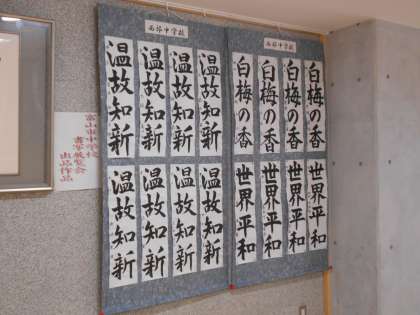 西部中学校
温故知新
温故知新
温故知新
温故知新
温故知新
温故知新
温故知新
温故知新
西部中学校
白梅の香
白梅の香
白梅の香
白梅の香
世界平和
世界平和
世界平和
世界平和
富山市中学校
書写展覧会
出品作品